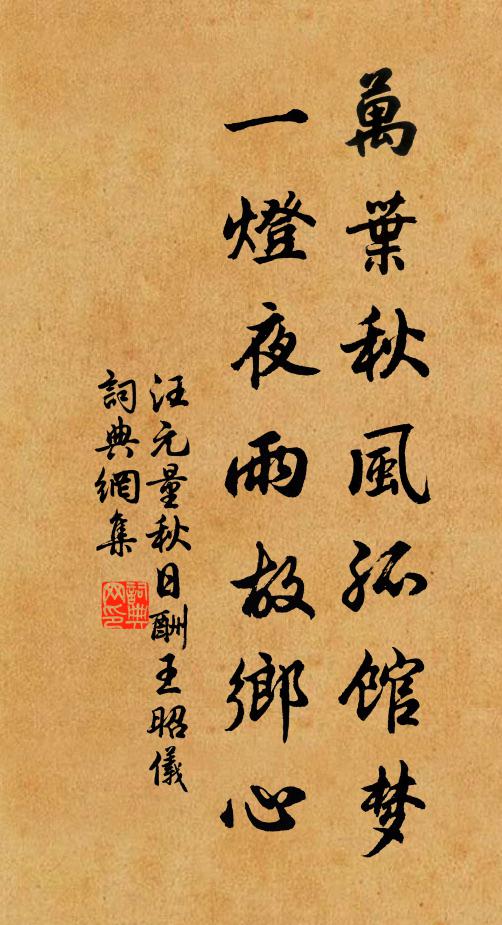 萬葉秋風孤館梦
一燈夜雨故鄉心
汪元量秋日酬王昭儀
詞典網集
詞典
网印